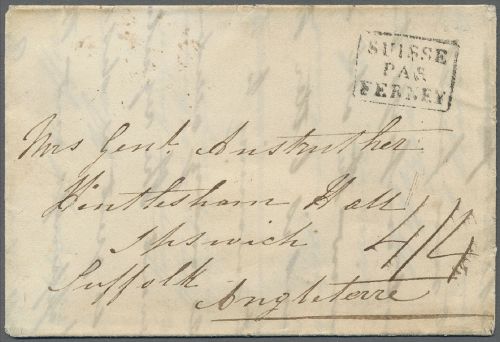 SUISSE
PAR
FERNEY
Mrs Genl. Anstruther
Hintlesham Hall
Ipswich
4/4
Suffolk
Angleterre